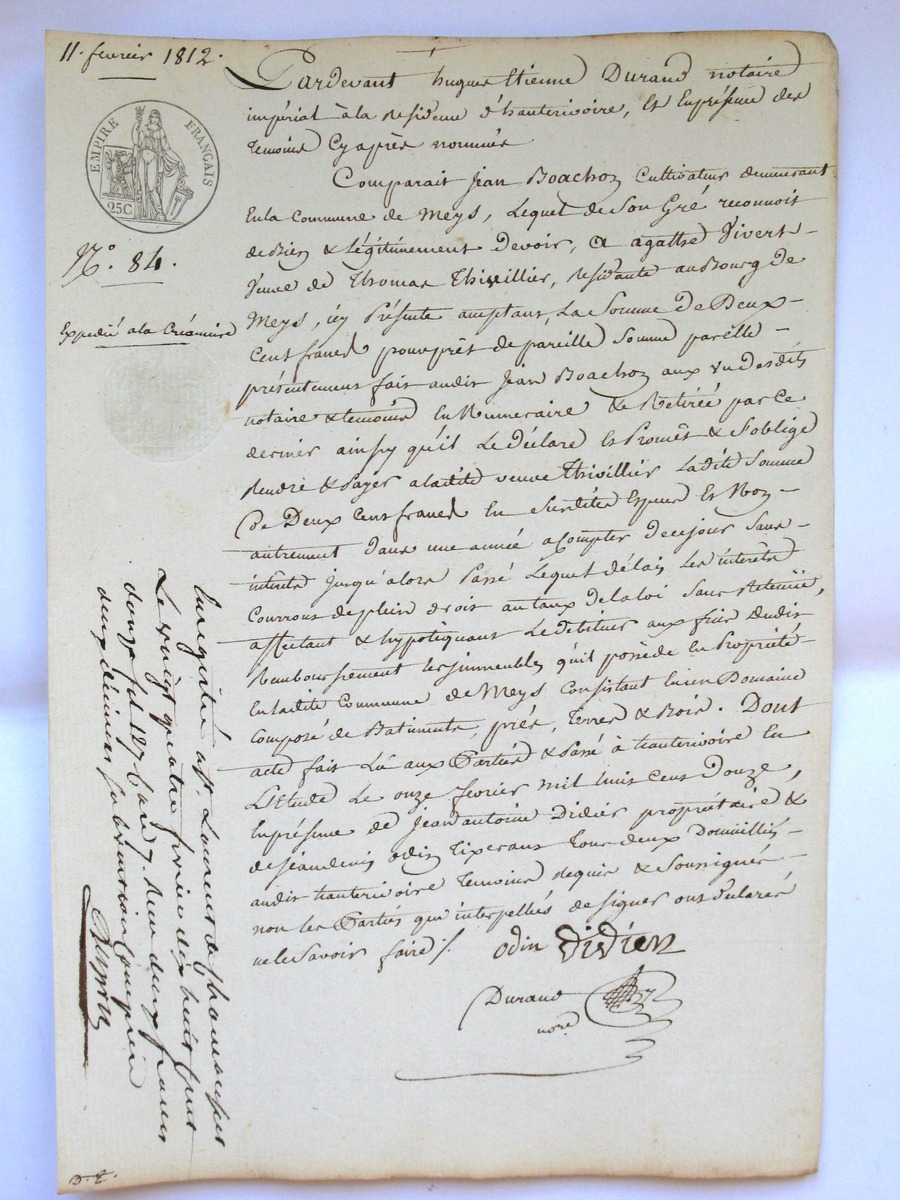 11. fevrier 1812.
EMPIRE FRANÇAIS
25C
N.º 84.
Expedié a la Créancière
Pardevant hugues Etienne Durand notaire
impérial à la residence d'hauterivoire, Et En présence des
temoins Cy après nommés
Comparait Jean Boachon Cultivateur demeurant
En la Commune de Meys, Lequel de Son Gré reconnoit
de bien & légitimement devoir, a agathe Vivert
Veuve de Thomas Thivillier, residante au Bourg de
Meys, icy Présente acceptant, La Somme de Deux
Cent francs pour prêt de pareille Somme par elle
présentement fait audit Jean Boachon aux vu desdits
notaire & temoins En Numeraire & Retirée par Ce
dernier ainsy qu'il Le déclare Et Promêt & S'oblige
Rendre & Payer a ladite veuve Thivillier Ladite Somme
de Deux Cent francs En Susdites Espèces Et Non
autrement dans une année a Compter de ce jour Sans
intérêts jusqu'alors Passé Lequel délais Les intérêts
Courront de plein droit au taux de la loi Sans Retenue,
affectant & hypotéquant Le débiteur aux fins dudit
Remboursement les immeubles qu'il possède En Propriété
En ladite Commune de Meys Consistant En un Domaine
Composé de Batiments, prés, Terres & Bois. Dont
acte fait Lû aux Parties & Passé à hauterivoire En
L'étude Le onze fevrier mil huit cent Douze,
En présence de Jean antoine Didier propriétaire &
de Jean denis odin tixerant tous deux Domiciliés
audit hauterivoire temoins requis & Soussignés
non les Parties qui interpellés de signer ont déclaré
ne le Savoir faire ./.
odin Didier
Durand
nore
Enregistré a St Laurent de Chamousset
Le vingt quatre fevrier dix huit cent
douze fol. 187 case 7. Reçu deux francs
deux décimes subvention comprise
D. E.